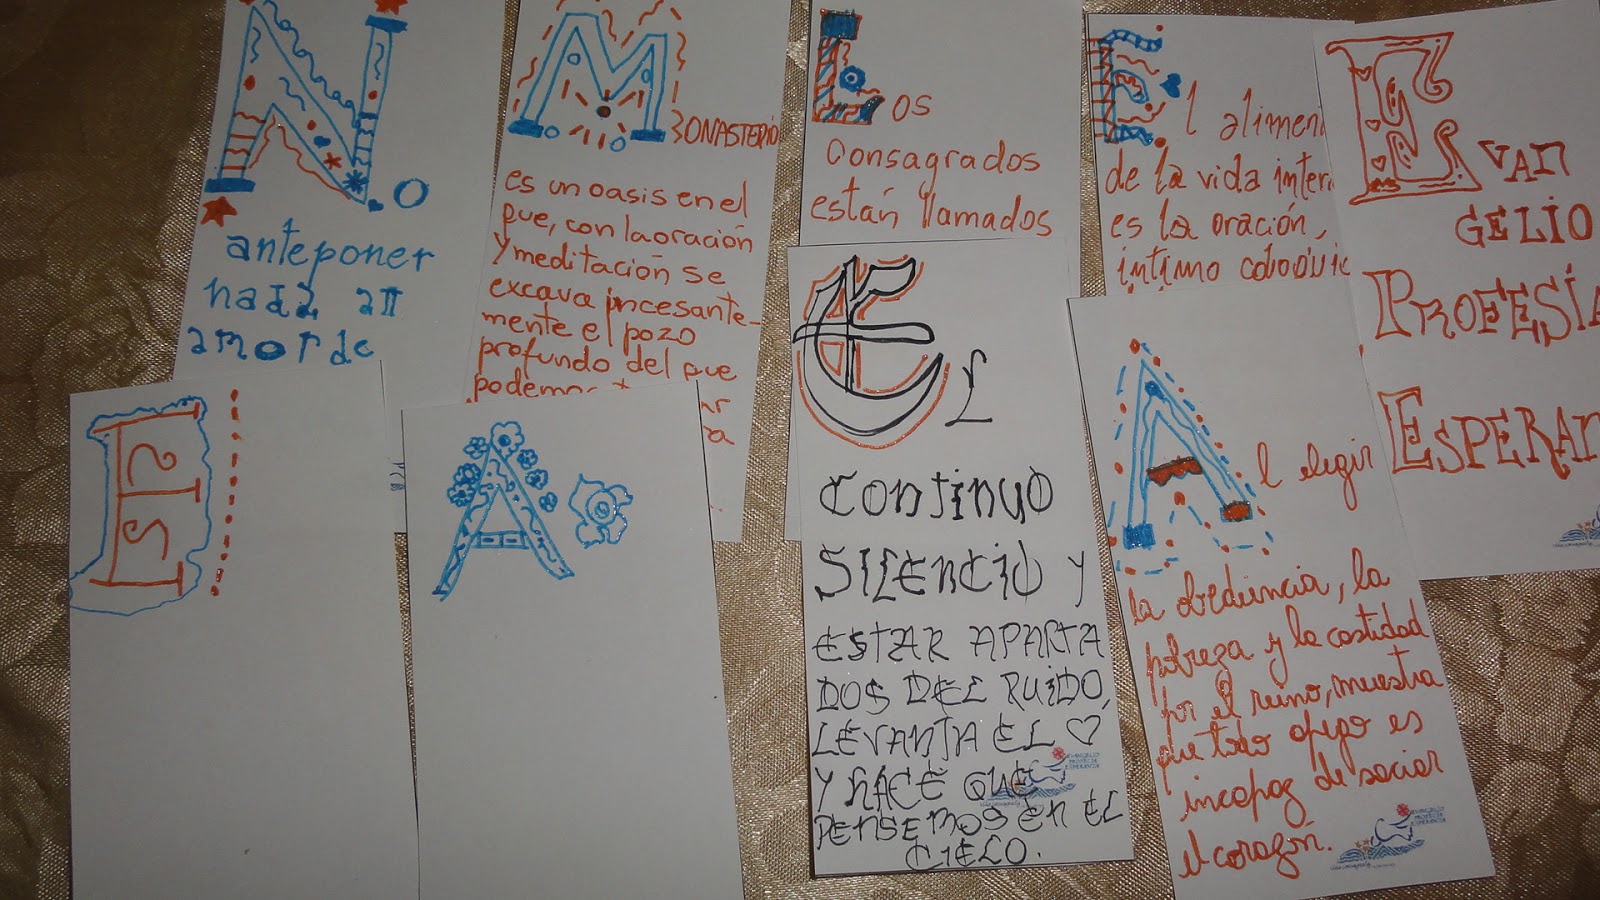 N.o
anteponer
nada al
amor de
MONASTERIO
es un oasis en el
que, con la oración
y meditación se
excava incesante-
mente el pozo
profundo del que
podemos
Los
Consagrados
están llamados
El alimen
de la vida interi
es la oración,
íntimo
EVAN
GELIO
PROFESÍA
ESPERAN
ISIS
A
El
CONTINUO
SILENCIO Y
ESTAR APARTA
DOS DEL RUIDO,
LEVANTA EL ♡
Y HACE QUE
PENSEMOS EN EL
CIELO.
Al elegir
la obediencia, la
pobreza y la castidad
por el reino, muestra
que todo apego es
incapaz de saciar
el corazón.
EVANGELIO
PROFECÍA
ESPERANZA